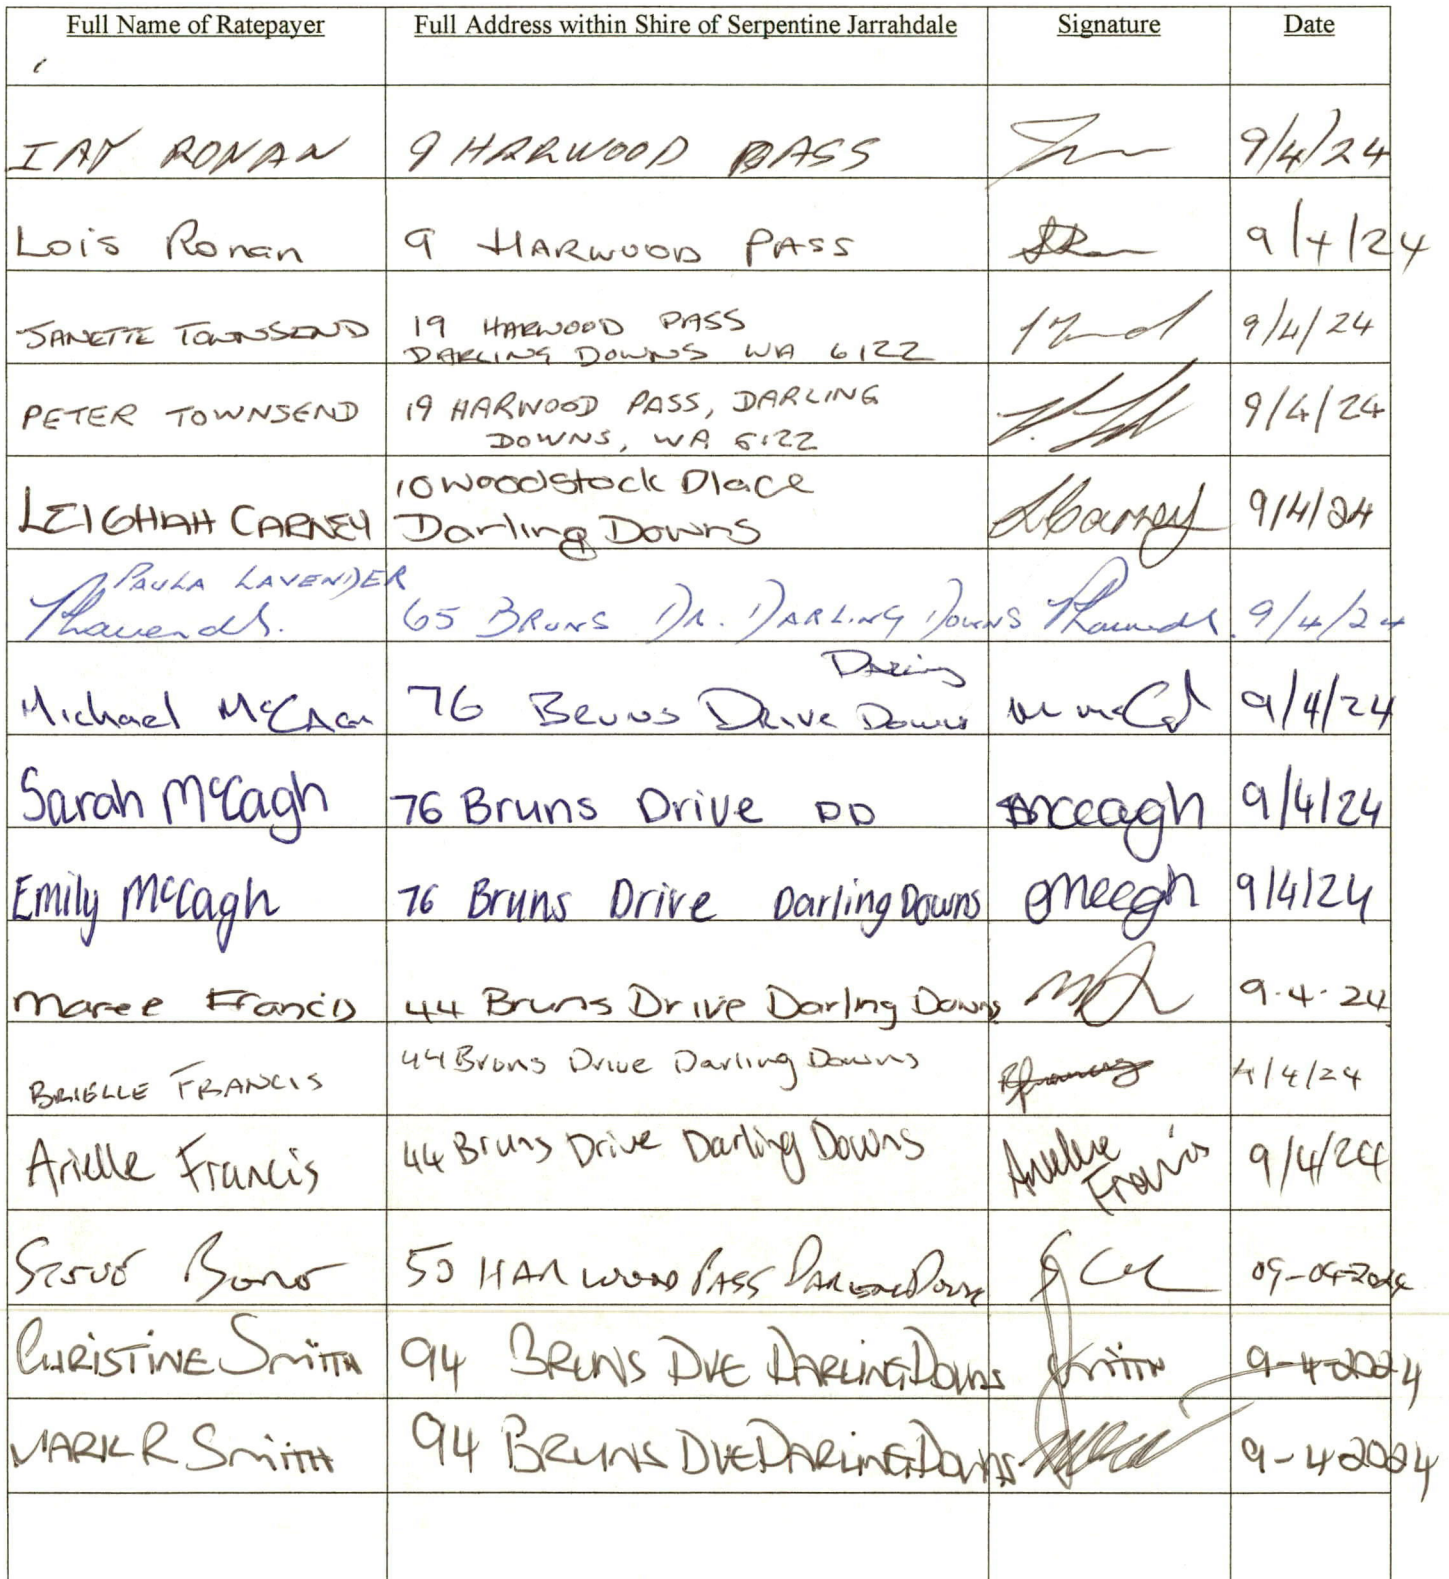 Full Name of Ratepayer Full Address within Shire of Serpentine Jarrahdale Signature Date
IAN RONAN 9 HARWOOD PASS 9/4/24
Lois Ronan 9 HARWOOD PASS 9/4/24
JANETTE TOWNSEND 19 HARWOOD PASS 9/4/24
DARLING DOWNS WA 6122
PETER TOWNSEND 19 HARWOOD PASS, DARLING 9/4/24
DOWNS, WA 6122
LEIGHAH CARNEY 10 Woodstock Place LCarney 9/4/24
Darling Downs
PAULA LAVENDER
65 BRUNS DR. DARLING DOWNS 9/4/24
Darling
Michael McCagh 76 Bruns Drive Downs 9/4/24
Sarah McCagh 76 Bruns Drive DD 9/4/24
Emily McCagh 76 Bruns Drive Darling Downs 9/4/24
Maree Francis 44 Bruns Drive Darling Downs 9.4.24
BRIELLE FRANCIS 44 Bruns Drive Darling Downs /4/24
Arielle Francis 44 Bruns Drive Darling Downs Arielle 9/4/24
Francis
50 HARWOOD PASS DARLING DOWNS 09-04-2024
CHRISTINE Smith 94 BRUNS DVE DARLING DOWNS Smith 9-4-2024
MARK R Smith 94 BRUNS DVE DARLING DOWNS 9-4-2024